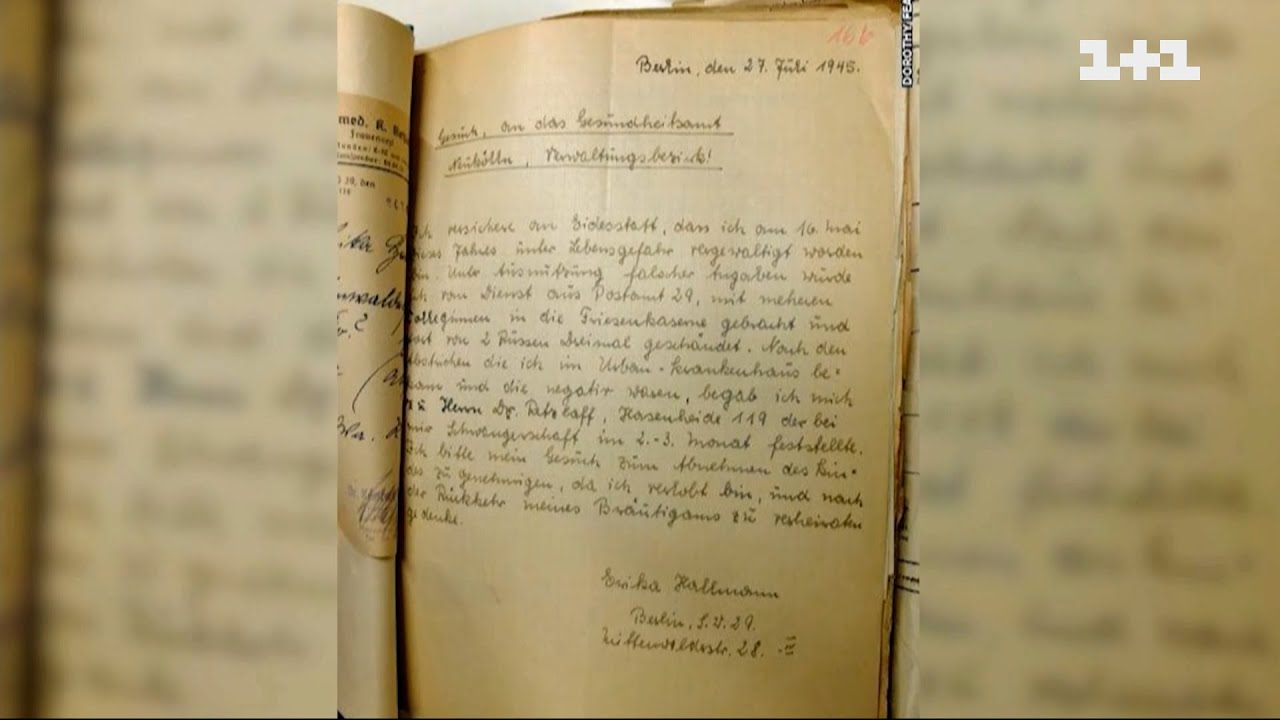 1+1
DOROTHY FEA
166
Berlin, den 27. Juli 1945.
Gesuch, an das Gesundheitsamt
Neukölln, Verwaltungsbezirk!
med. R.
Frauenarzt
ich versichere an Eidesstatt, dass ich am 16. Mai
dieses Jahres unter Lebensgefahr vergewaltigt worden
bin. Unter Ausnutzung falscher Angaben wurde
ich von Dienst aus Postamt 29, mit meheren
Kolleginnen in die Friesenkaserne gebracht und
dort von 2 Russen Dreimal geschändet. Nach den
Abstrichen die ich im Urban-Krankenhaus be-
kam und die negativ waren, begab ich mich
zu Herrn Dr. Retzlaff, Hasenheide 119 der bei
mir Schwangerschaft im 2.-3. Monat feststellte.
Ich bitte mein Gesuch zum Abnehmen des Kin-
des zu genehmigen, da ich verlobt bin, und nach
der Rückkehr meines Bräutigams zu verheiraten
gedenke.
Erika Hallmann
Berlin, S.W. 29.
28. III